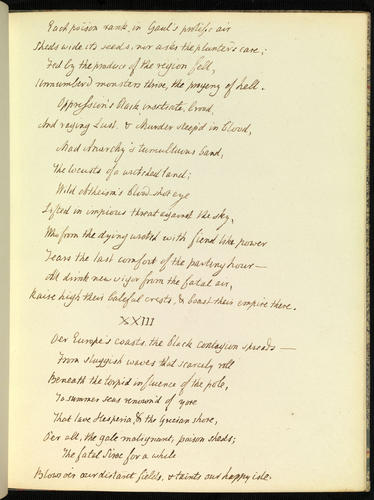 Each poison rank, in Gaul's prolific air
Sheds wide its seeds, nor asks the planter's care;
Fed by the produce of the region fell,
Unnumber'd monsters thrive, the progeny of hell.
Oppression's black insatiate brood,
And raging Lust, & Murder steep'd in blood,
Mad Anarchy's tumultuous band,
The locusts of a wretched land;
Wild atheism's blood-shot eye
Lifted in impious threat against the sky,
Who from the dying wretch with fiend like power
Tears the last comfort of the parting hour—
All drink new vigor from the fatal air,
Raise high their baleful crests, & boast their empire there.
XXIII
O'er Europe's coasts the black contagion spreads—
From sluggish waves that scarcely roll
Beneath the torpid influence of the pole,
To summer seas renown'd of yore
That lave Hesperia, & the Grecian shore,
O'er all, the gale malignant, poison sheds;
The fatal for a while
Blows o'er our distant fields, & taints our happy isle.